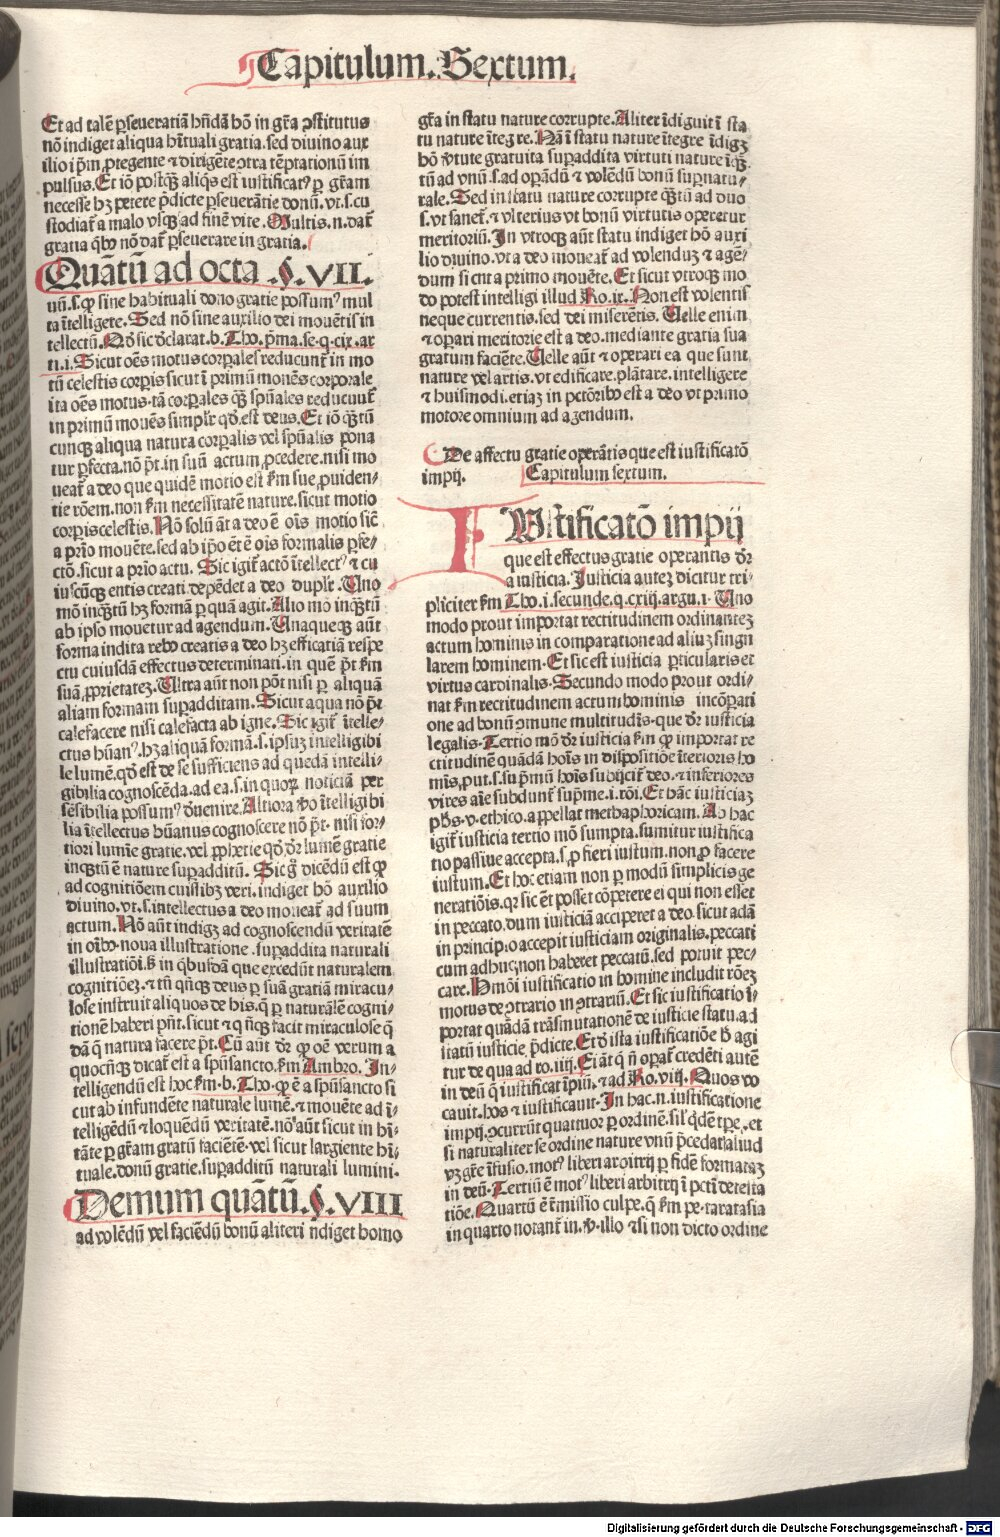 Capitulum. Sextum.
Et ad talē ꝑseueratiā hn̄dā hō in gr̄a ↄstitutus
nō indiget aliqua hītuali gratia. sed diuino aux
ilio ip̄m ꝓtegente ⁊ dirigēte ↄtra tēptationū im
pulsus. Et iō postqꝫ aliq̄s est iustificatꝰ ꝑ gr̄am
necesse hꝫ petere p̄dicte ꝑseuerātie donū. vt. s. cu
stodiat᷑ a malo vsqꝫ ad finē vite. Multis. n. dat᷑
gratia qͥbꝰ nō dat᷑ ꝑseuerare in gratia.
Quātū ad octa .§. VII.
uū. s. ꝙ sine habituali dono gratie possumꝰ mul
ta ītelligete. Sed nō sine auxilio dei mouētis in
tellectū. Qd̄ sic declarat. b. Tho. pͥma. se. q. cix. ar
ti. i. Sicut oēs motus corꝑales reducunt᷑ in mo
tū celestis corpis sicut ī primū mouēs corporale
ita oēs motus. tā corꝑales qꝫ spūales reducunt᷑
in primū mouēs simplr̄ qd̓ est deus. Et iō qꝫtū
cunqꝫ aliqua natura corꝑalis vel spūalis pona
tur ꝑfecta. nō pōt. in suū actum ꝓcedere. nisi mo
ueat᷑ a deo que quidē motio est ẜm sue ꝓuiden⸗
tie rōem. non ẜm necessitatē nature. sicut motio
corpis celestis. Nō solū āt a deo ē oīs motio sic̄
a prīo mouēte. sed ab ip̄o ēt ē oīs formalis ꝑfe⸗
ctō. sicut a prīo actu. Sic igit᷑ actō ītellectꝰ ⁊ cu
iuscūqꝫ entis creati depēdet a deo duplr̄. Uno
mō inqꝫtū hꝫ formā ꝑ quā agit. Alio mō inqꝫtū
ab ipso mouetur ad agendum. Unaqueqꝫ aūt
forma indita rebꝰ creatis a deo hꝫ efficatiā respe
ctu cuiusdā effectus determinati. in quē pōt ẜm
suā ꝓprietateꝫ. Ultra aūt non pōt nisi ꝑ aliquā
aliam formam suꝑadditam. Sicut aqua nō pōt
calefacere nisi calefacta ab igne. Sic igit᷑ ītelle⸗
ctus hūanꝰ. hꝫ aliquā formā. s. ipsuꝫ intelligibi
le lumē. qd̓ est de se sufficiens ad quedā intelli⸗
gibilia cognoscēda. ad ea. s. in quoꝝ noticiā per
sēsibilia possumꝰ deuenire. Altiora ꝟo ītelligibi
lia ītellectus hūanus cognoscere nō pōt. nisi for⸗
tiori lumīe gratie. vel ꝓphetie qd̓ dr̄ lumē gratie
inqꝫtū ē nature suꝑadditū. Sic gͦ dicēdū est ꝙ
ad cognitiōem cuiuslibꝫ veri. indiget hō auxilio
diuino. vt. s. intellectus a deo moueat᷑ ad suum
actum. Nō aūt indigꝫ ad cognoscendū veritatē
in oībꝰ. noua illustratione. suꝑaddita naturali
illustratiōi. ẜ in qͥbusdā que excedūt naturalem
cognitiōeꝫ. ⁊ tn̄ qn̄qꝫ deus ꝑ suā gratiā miracu⸗
lose instruit aliquos de his. q̄ ꝑ naturalē cogni⸗
tionē haberi pn̄t. sicut ⁊ qn̄qꝫ facit miraculose q̄
dā q̄ natura facere pōt. Cū aūt dr̄ ꝙ oē verum a
quocūqꝫ dicat᷑ est a spūsancto. ẜm Ambro. In⸗
telligendū est hoc ẜm. b. Tho. ꝙ ē a spūsancto si
cut ab infundēte naturale lumē. ⁊ mouēte ad ī⸗
telligēdū ⁊ loquēdū veritatē. nō aūt sicut in hī⸗
tāte ꝑ gr̄am gratū faciētē. vel sicut largiente hī⸗
tuale. donū gratie. suꝑadditū naturali lumini.
Demum quātū. §. VIII
ad volēdū vel faciēdū bonū aliteri ndiget homo
gr̄a in statu nature corrupte. Aliter īdiguit ī sta
tu nature ītegre. Nā ī statu nature ītegre īdigꝫ
hō ꝟtute gratuita suꝑaddita virtuti nature īqꝫ
tū ad vnū. s. ad oꝑādū ⁊ volēdū bonū suꝑnatu⸗
rale. Sed in statu nature corrupte qꝫtū ad duo
s. vt sanet᷑. ⁊ vlterius vt bonū virtutis operetur
meritoriū. In vtroqꝫ aūt statu indiget hō auxi
lio diuino. vt a deo moueat᷑ ad volenduꝫ ⁊ agē⸗
dum sicut a primo mouēte. Et sicut vtroqꝫ mo
do potest intelligi illud Ro. ix. Non est volentis
neque currentis. sed dei miserētis. Uelle enim
⁊ oꝑari meritorie est a deo. mediante gratia sua
gratum faciēte. Uelle aūt ⁊ operari ea que sunt
nature vel artis. vt edificare. plātare. intelligere
⁊ huiusmodi. etiaꝫ in pctōribꝰ est a deo vt primo
motore omnium ad agendum.
De affectu gratie operātis que est iustificatō
impij. Capitulum sextum.
IUstificatō impij
que est effectus gratie operantis dr̄
a iusticia. Iusticia auteꝫ dicitur tri⸗
pliciter ẜm Tho. i. secunde. q. cxiij. argu. i. Uno
modo prout importat rectitudinem ordinanteꝫ
actum hominis in comparatione ad aliuꝫ singu
larem hominem. Et sic est iusticia ꝑticularis et
virtus cardinalis. Secundo modo prout ordi⸗
nat ẜm rectitudinem actum hominis incōꝑati
one ad bonū ↄmune multitudīs. que dr̄ iusticia
legalis. Tertio mō dr̄ iusticia ẜm ꝙ importat re
ctitudinē quādā hoīs in dispositiōe īterioris ho
mīs. ꝓut. s. supͥmū hoīs subijcit᷑ deo. ⁊ inferiores
vires aīe subdunt᷑ supͥme. i. rōi. Et hāc iusticiaꝫ
phs. v. ethico. appellat methaphoricam. Ab hac
igit᷑ iusticia tertio mō sumpta. sumitur iustifica
tio passiue accepta. s. ꝓ fieri iustum. non ꝓ facere
iustum. Et hoc etiam non ꝑ modū simplicis ge
neratiōis. qꝛ sic ēt posset cōpetere ei qui non esset
in peccato. dum iusticiā acciperet a deo. sicut adā
in principio accepit iusticiam originalis. peccati
cum adhuc non haberet peccatū. sed potuit pec⸗
care. Hmōi iustificatio in homine includit rōeꝫ
motus de ↄtrario in ↄtrariū. Et sic iustificatio ī⸗
portat quādā trāsmutationē de iusticie statu. ad
statū iusticie p̄dicte. Et d̄ ista iustificatiōe h̄ agi
tur de qua ad ro. iiij. Ei āt q̄ nō oꝑat᷑ credēti autē
in deū q̄ iustificat īpiū. ⁊ ad Ro. viij. Quos vo
cauit. hos ⁊ iustificauit. In hac. n. iustificatione
impij. ↄcurrūt quattuor ꝑ ordinē. sil̓ qdē tꝑe. et
si naturaliter se ordine nature vnū p̄cedat aliud
vꝫ gr̄e īfusio. motꝰ liberi arbitrij ꝑ fidē formataꝫ
in deū. Tertiū ē motꝰ liberi arbitrij ī pctī detesta
tiōe. Quartū ē remissio culpe. q̄ ẜm pe. taratasia
in quarto notant᷑ in. v. illo ⁊ si non dicto ordine
Digitalisierung gefördert durch die Deutsche Forschungsgemeinschaft - DFG